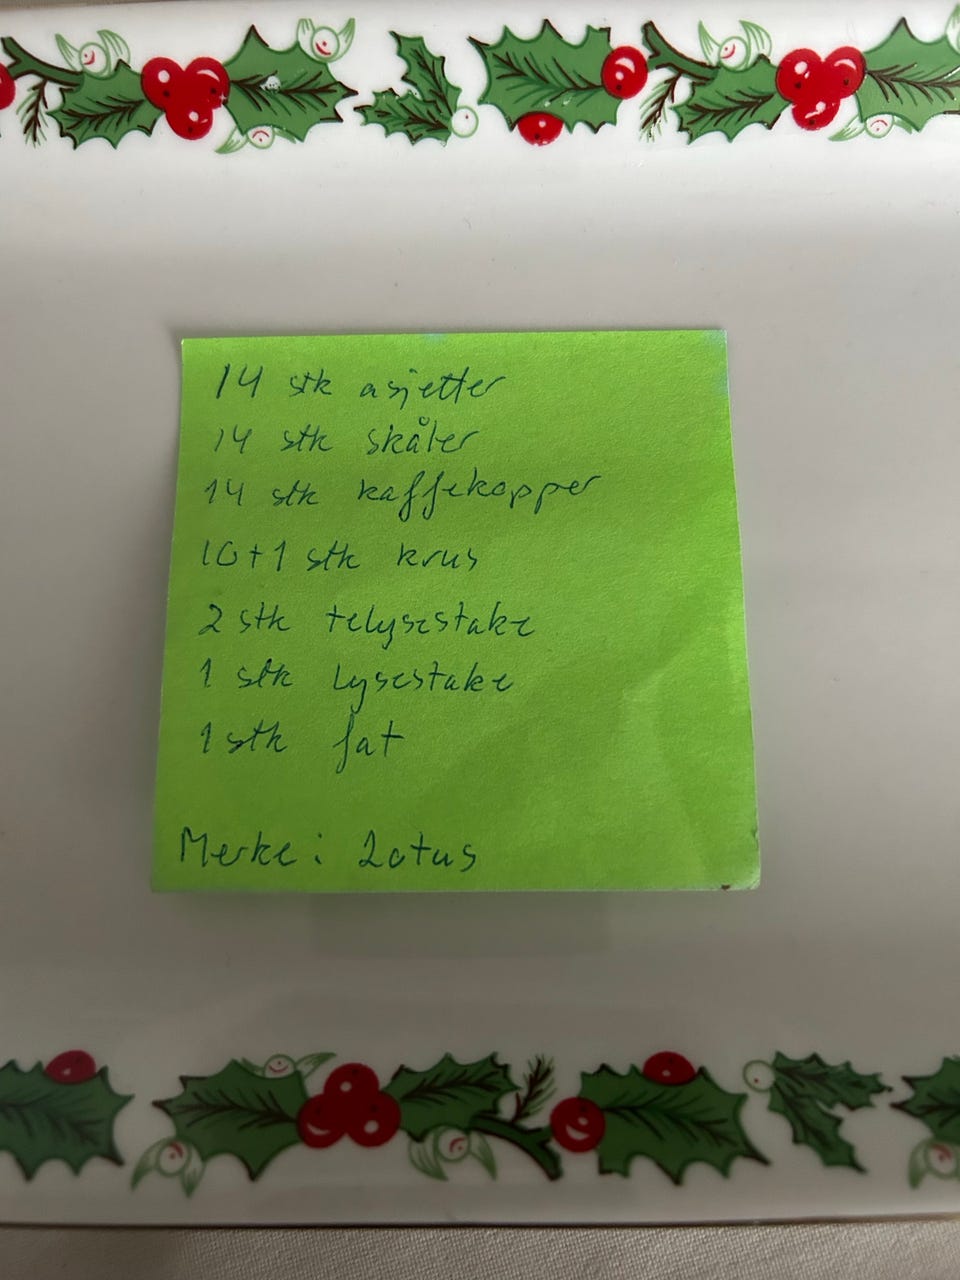 14 stk asjetter
14 stk skåler
14 stk kaffekopper
10+1 stk krus
2 stk telysestake
1 stk Lysestake
1 stk fat
Merke: Lotus